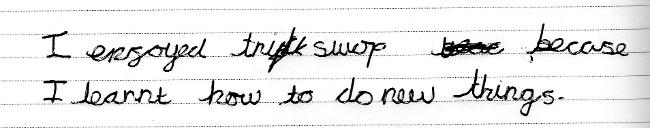 I enjoyed swop becase
I learnt how to do new things.